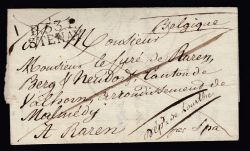 P.53.P.
STENAY
Belgique
A Monsieur
Monsieur le Curé de Raeren,
Berg & Neudorf Canton de
Walhorn, arrondissement de
Malmédy
A Raeren
Dépt. de Lourthe
par Spa